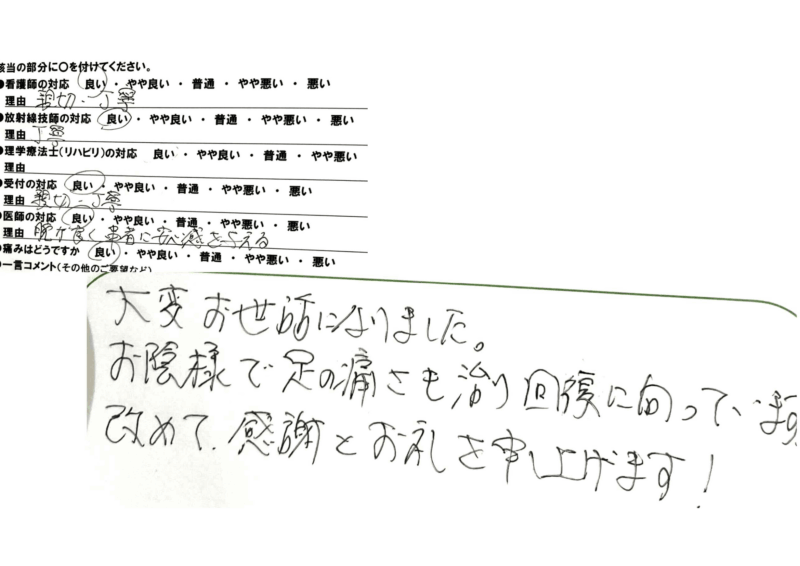 該当の部分に〇を付けてください。
●看護師の対応 良い ・ やや良い ・ 普通 ・ やや悪い ・ 悪い
理由 親切・丁寧
●放射線技師の対応 良い ・ やや良い ・ 普通 ・ やや悪い ・ 悪い
理由 丁寧
●理学療法士(リハビリ)の対応 良い ・ やや良い ・ 普通 ・ やや悪い
理由
●受付の対応 良い ・ やや良い ・ 普通 ・ やや悪い ・ 悪い
理由 親切・丁寧
●医師の対応 良い ・ やや良い ・ 普通 ・ やや悪い ・ 悪い
理由 腕が良く患者に安心感を与える
●痛みはどうですか 良い ・ やや良い ・ 普通 ・ やや悪い ・ 悪い
●一言コメント(その他のご要望など)
大変お世話になりました。
お陰様で足の痛さも治り回復に向っています
改めて、感謝とお礼を申し上げます!